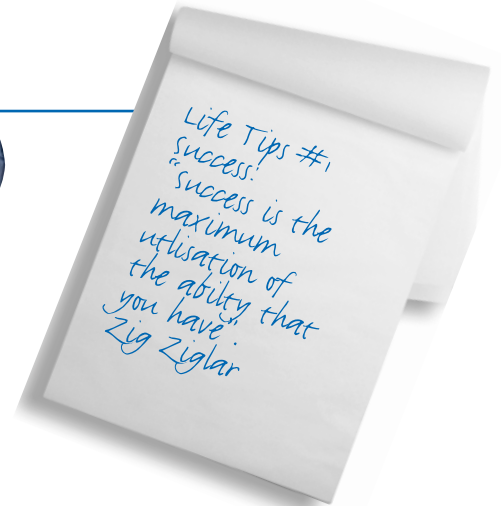 Life Tips #1
success:
"success is the
maximum
utlisation of
the abilty that
you have".
Zig Ziglar